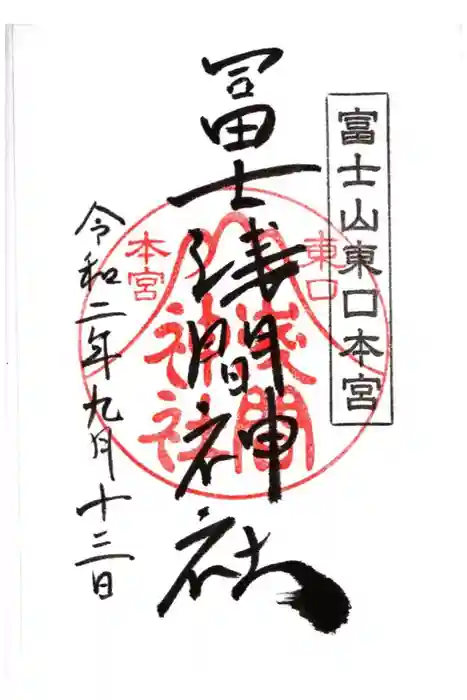 富士山東口本宮
冨士浅間神社
東口
本宮
浅間
神社
令和二年九月十三日